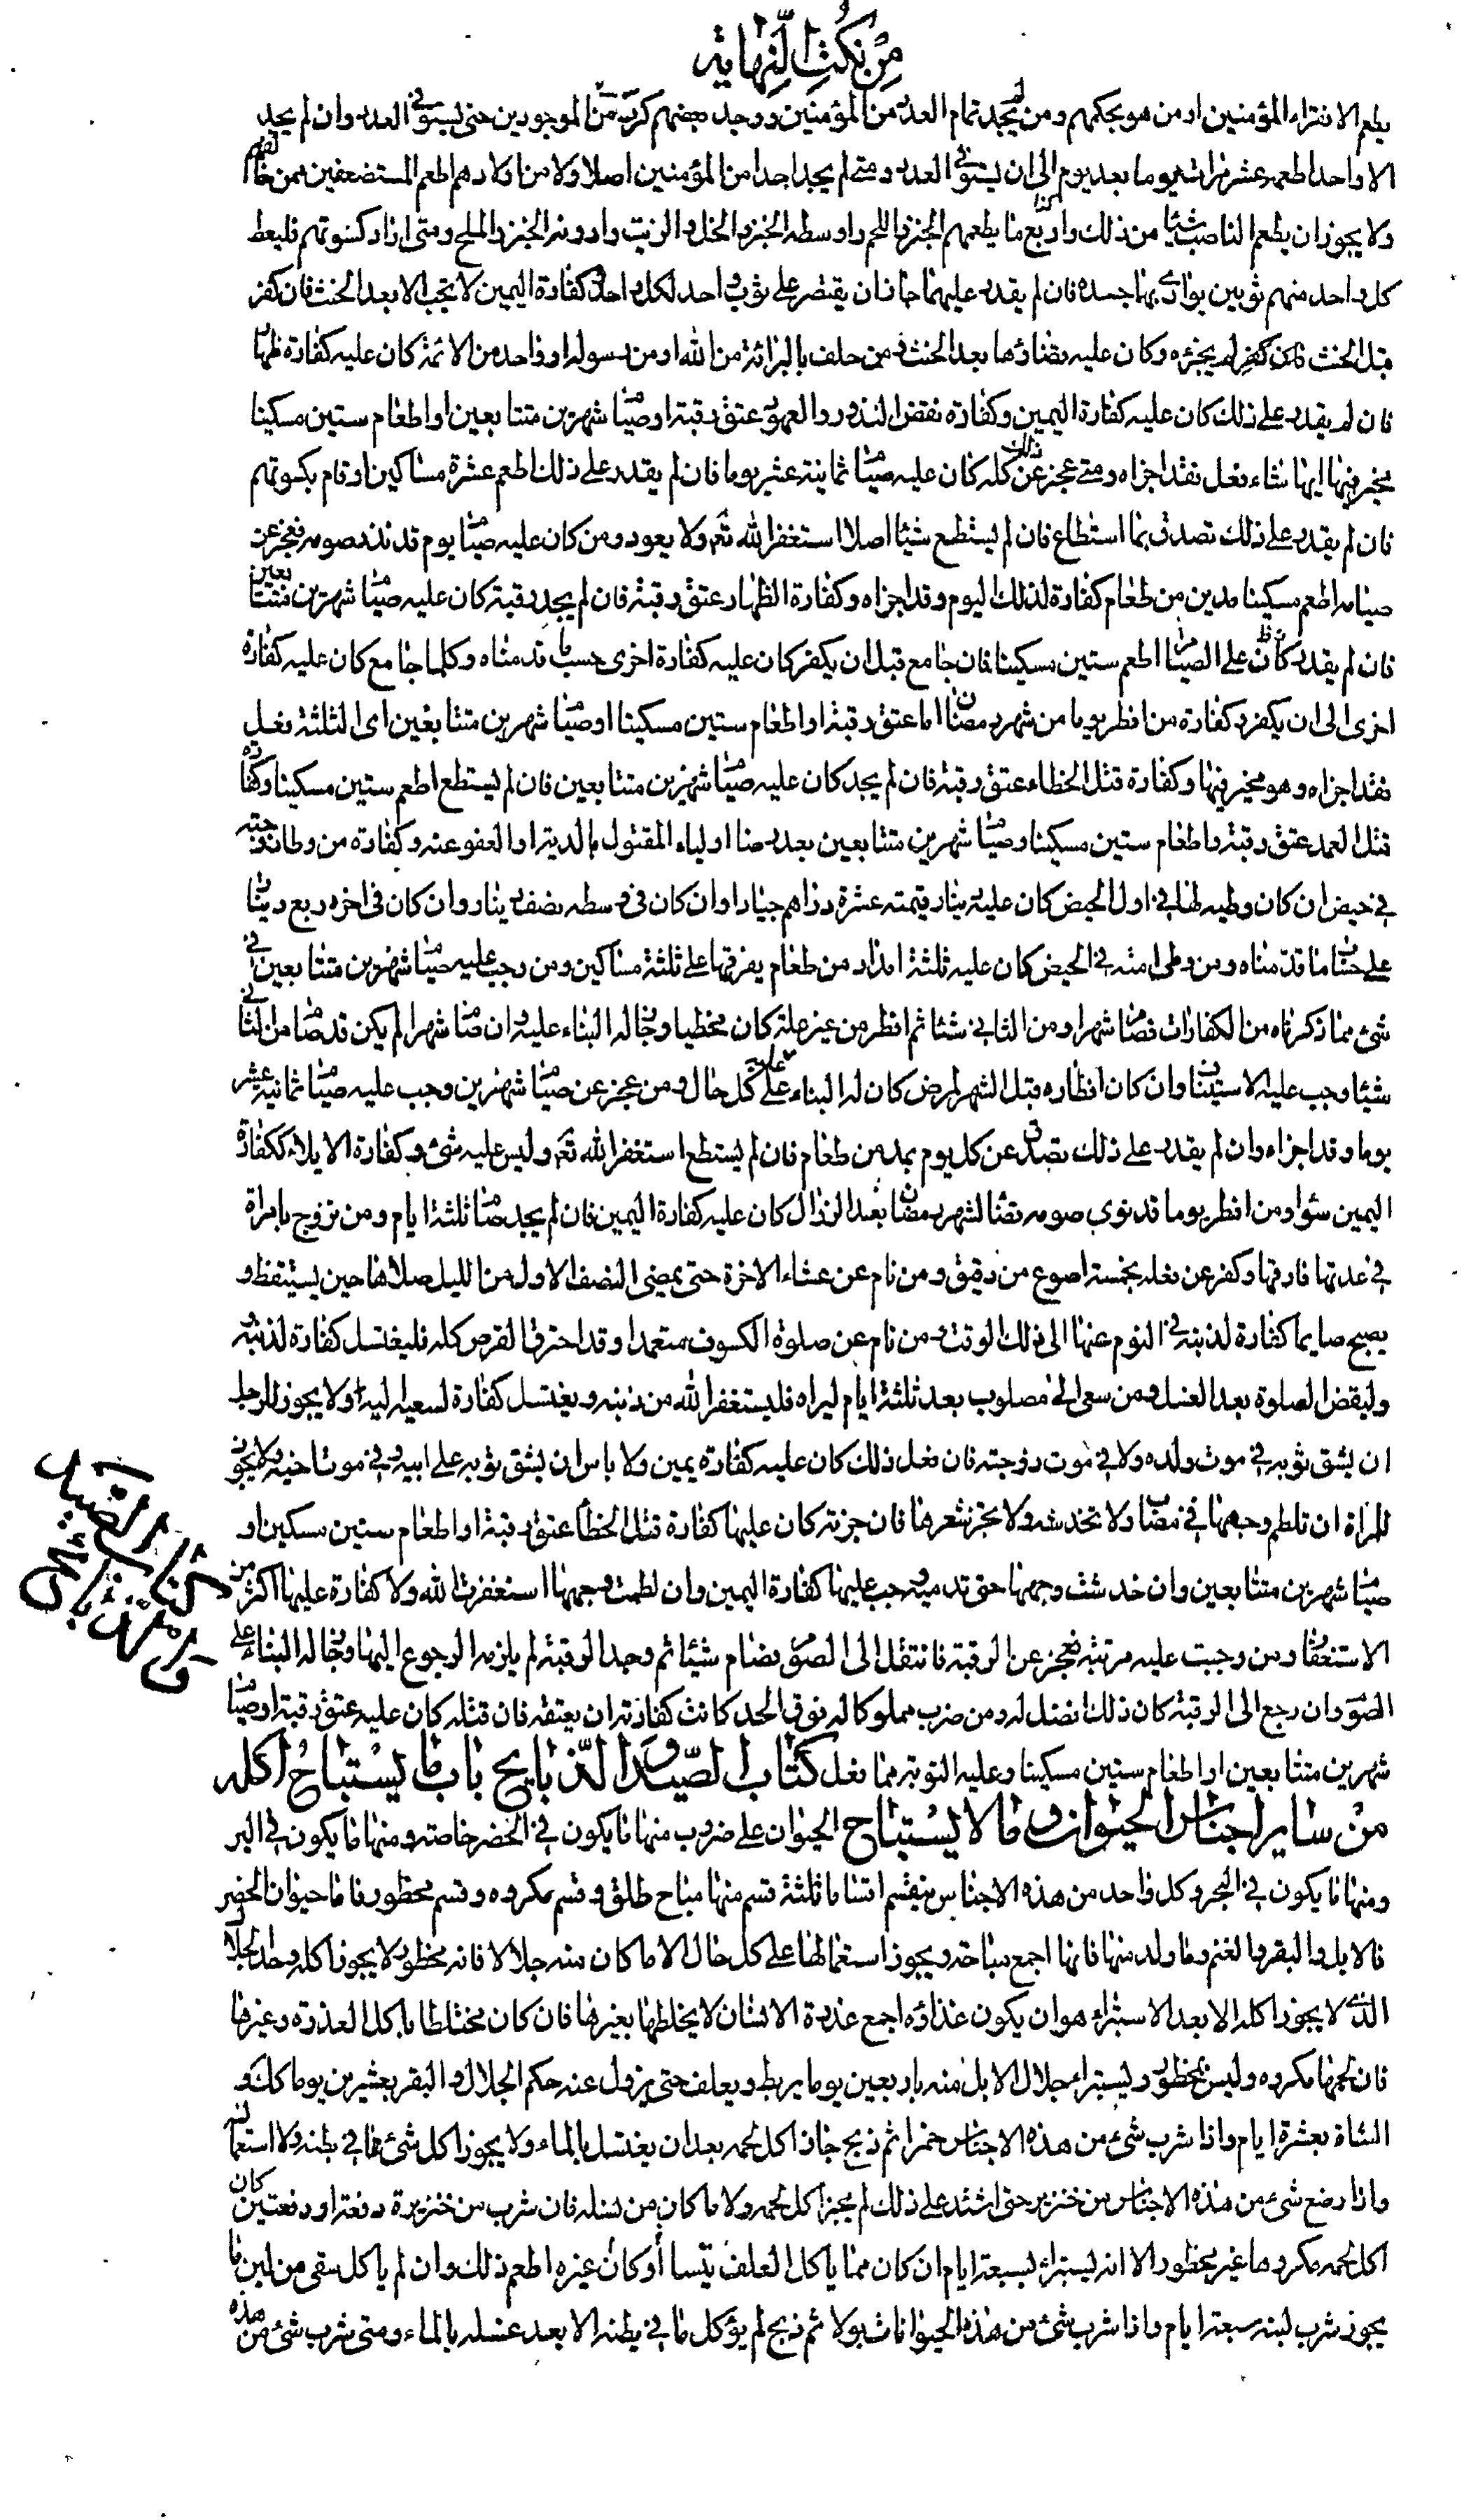 من نكت النهاية
يطعم الا فقراء المؤمنين او من هو بحكمهم ومن لم يجد تمام العدد من المؤمنين ووجد بعضهم كرر من الموجودين حتى يستوفى العدد وان لم يجد
الا واحدا اطعمه عشر مرات يوما بعد يوم الى ان يستوفى العدد ومتى لم يجد احدا من المؤمنين اصلا ولا من اولادهم اطعم المستضعفين ممن خالفهم
ولا يجوز ان يطعم الناصب شيئا من ذلك وارفع ما يطعمهم الخبز واللحم واوسطه الخبز والخل والزيت وادونه الخبز والملح ومتى اراد كسوتهم فليعط
كل واحد منهم ثوبين يوارى بهما جسده فان لم يقدر عليهما جاز ان يقتصر على ثوب واحد لكل واحد وكفارة اليمين لا تجب الا بعد الحنث فان كفر
قبل الحنث لم يجزه وكان عليه قضاؤها بعد الحنث ومن حلف بالبرائة من الله او من رسوله او واحد من الائمة كان عليه كفارة ظهار
فان لم يقدر على ذلك كان عليه كفارة اليمين وكفارة نقض النذور والعهود عتق رقبة او صيام شهرين متتابعين او اطعام ستين مسكينا
مخير فيها ايها شاء فعل فقد اجزاه ومتى عجز عن ذلك كله كان عليه صيام ثمانية عشر يوما فان لم يقدر على ذلك اطعم عشرة مساكين او قام بكسوتهم
فان لم يقدر على ذلك تصدق بما استطاع فان لم يستطع شيئا اصلا استغفر الله تعم ولا يعود ومن كان عليه صيام يوم قد نذر صومه فعجز عن
صيامه اطعم مسكينا مدين من طعام كفارة لذلك اليوم وقد اجزاه وكفارة الظهار عتق رقبة فان لم يجد رقبة كان عليه صيام شهرين متتابعين
فان لم يقدر على الصيام اطعم ستين مسكينا فان جامع قبل ان يكفر كان عليه كفارة اخرى حسب ما قدمناه وكلما جامع كان عليه كفارة
اخرى الى ان يكفر وكفارة من افطر يوما من شهر رمضان اما عتق رقبة او اطعام ستين مسكينا او صيام شهرين متتابعين اى الثلثة فعل
فقد اجزاه وهو مخير فيها وكفارة قتل الخطاء عتق رقبة فان لم يجد كان عليه صيام شهرين متتابعين فان لم يستطع اطعم ستين مسكينا وكفارة
قتل العمد عتق رقبة واطعام ستين مسكينا وصيام شهرين متتابعين بعد رضا اولياء المقتول بالدية او العفو عنه وكفارة من وطا زوجته
فى حيض ان كان وطيه لها فى اول الحيض كان عليه دينار قيمته عشرة دراهم جيادا وان كان فى وسطه نصف دينار وان كان فى اخره ربع دينار
على حسب ما قدمناه ومن وطى امته فى الحيض كان عليه ثلثة امداد من طعام يفرقها على ثلثة مساكين ومن وجب عليه صيام شهرين متتابعين فى
شئ مما ذكرناه من الكفارات فصام شهرا ومن الثانى شيئا ثم افطر من غير علة كان مخطيا وجاز له البناء عليه وان صام شهرا لم يكن قد صام من الثانى
شيئا وجب عليه الاستيناف وان كان افطاره قبل الشهر لمرض كان له البناء عليه على كل حال ومن عجز عن صيام شهرين وجب عليه صيام ثمانية عشر
يوما وقد اجزاه وان لم يقدر على ذلك تصدق عن كل يوم بمد من طعام فان لم يستطع استغفر الله تعم وليس عليه شئ وكفارة الايلاء ككفارة
اليمين سواء ومن افطر يوما قد نوى صومه قضاء لشهر رمضان بعد الزوال كان عليه كفارة اليمين فان لم يجد صام ثلثة ايام ومن تزوج بامراة
فى عدتها فارقها وكفر عن فعله بخمسة اصوع من دقيق ومن نام عن عشاء الاخرة حتى يمضى النصف الاول من الليل صلاها حين يستيقظ و
يصبح صايما كفارة لذنبه فى النوم عنها الى ذلك الوقت ومن نام عن صلوة الكسوف متعمدا وقد احترق القرص كله فليغتسل كفارة لذنبه
وليقض الصلوة بعد الغسل ومن سعى الى مصلوب بعد ثلثة ايام ليراه فليستغفر الله من ذنبه ويغتسل كفارة لسعيه اليه ولا يجوز للرجل
ان يشق ثوبه فى موت ولده ولا فى موت زوجته فان فعل ذلك كان عليه كفارة يمين ولا باس ان يشق ثوبه على ابيه وفى موت اخيه ولا يجوز
للمراة ان تلطم وجهها فى مصاب ولا تخدشه ولا تجز شعرها فان جزته كان عليها كفارة قتل الخطأ عتق رقبة او اطعام ستين مسكين او
صيام شهرين متتابعين وان خدشت وجهها حتى تدميه وجب عليها كفارة اليمين وان لطمت وجهها استغفرت الله ولا كفارة عليها اكثر من
الاستغفار ومن وجبت عليه مرتبة فعجز عن الرقبة فانتقل الى الصوم فصام شيئا ثم وجد الرقبة لم يلزمه الرجوع اليها وجاز له البناء على
الصوم وان رجع الى الرقبة كان ذلك افضل له ومن ضرب مملوكا له فوق الحد كانت كفارته ان يعتقه فان قتله كان عليه عتق رقبة او صيام
شهرين متتابعين او اطعام ستين مسكينا وعليه التوبة مما فعل كتاب الصيد والذبايح باب ما يستباح اكله
من ساير اجناس الحيوان وما لا يستباح الحيوان على ضروب منها ما يكون فى الحضر خاصة ومنها ما يكون فى البر
ومنها ما يكون فى البحر وكل واحد من هذه الاجناس ينقسم اقساما ثلثة قسم منها مباح طلق وقسم مكروه وقسم محظور فاما حيوان الحضر
فالابل والبقر والغنم وما ولد منها فانها اجمع مباحة ويجوز استعمالها على كل حال الا ما كان منه جلالا فانه محظور لا يجوز اكله وحد الجلال
الذى لا يجوز اكله الا بعد الاستبراء هو ان يكون غذاؤه اجمع عذرة الانسان لا يخلطها بغيرها فان كان مختلطا باكل العذرة وغيرها
فان لحمها مكروه وليس بمحظور ويستبراء جلال الابل منه باربعين يوما يربط ويعلف حتى يزول عنه حكم الجلال والبقر بعشرين يوما كك و
الشاة بعشرة ايام واذا شرب شئ من هذه الاجناس خمرا ثم ذبح جاز اكل لحمه بعد ان يغتسل بالماء ولا يجوز اكل شئ مما فى بطنه ولا استعماله
واذا رضع شئ من هذه الاجناس من خنزير حتى اشتد على ذلك لم يجز اكل لحمه ولا ما كان من نسله فان شرب من خنزيرة دفعة او دفعتين كان
اكل لحمه مكروها غير محظور الا انه يستبراء بسبعة ايام ان كان مما ياكل العلف تبنا أو كان غيره اطعم ذلك وان لم ياكل سقى من لبن ما
يجوز شرب لبنه سبعة ايام واذا شرب شئ من هذه الحيوانات بولا ثم ذبح لم يؤكل ما فى بطنه الا بعد غسله بالماء ومتى شرب شئ من هذه
كتاب الصيد
والذبايح